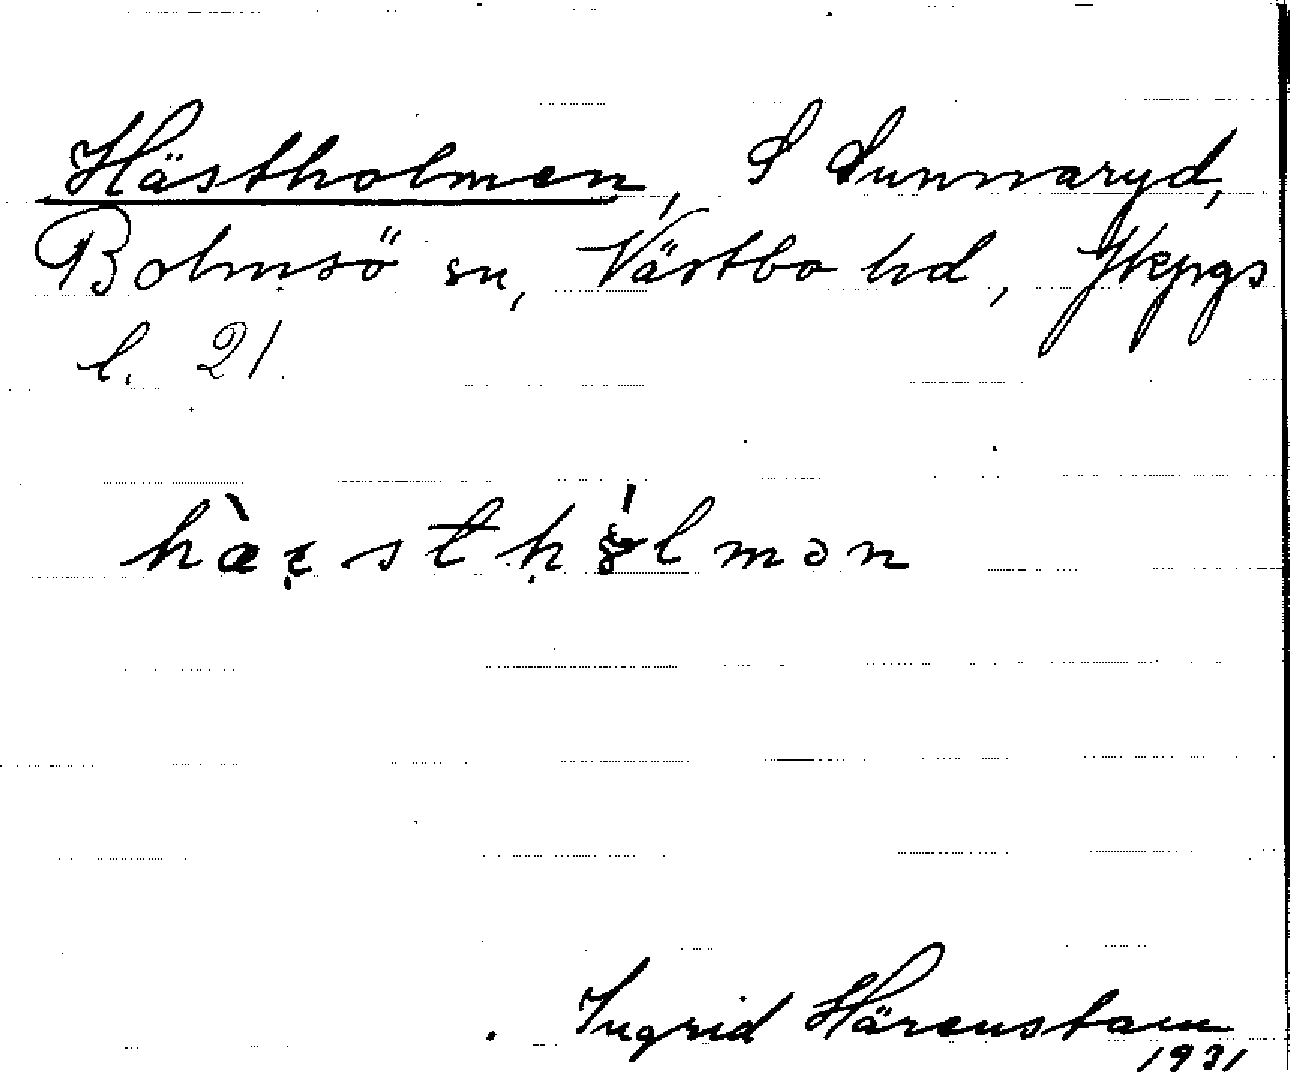 Hästholmen, S Sunnaryd,
Bolmsö sn, Västbo hd, Jkpgs
l. 21.
hæ̀ɛ̣stḥɔ́lmən
Ingrid Härenstam
1931